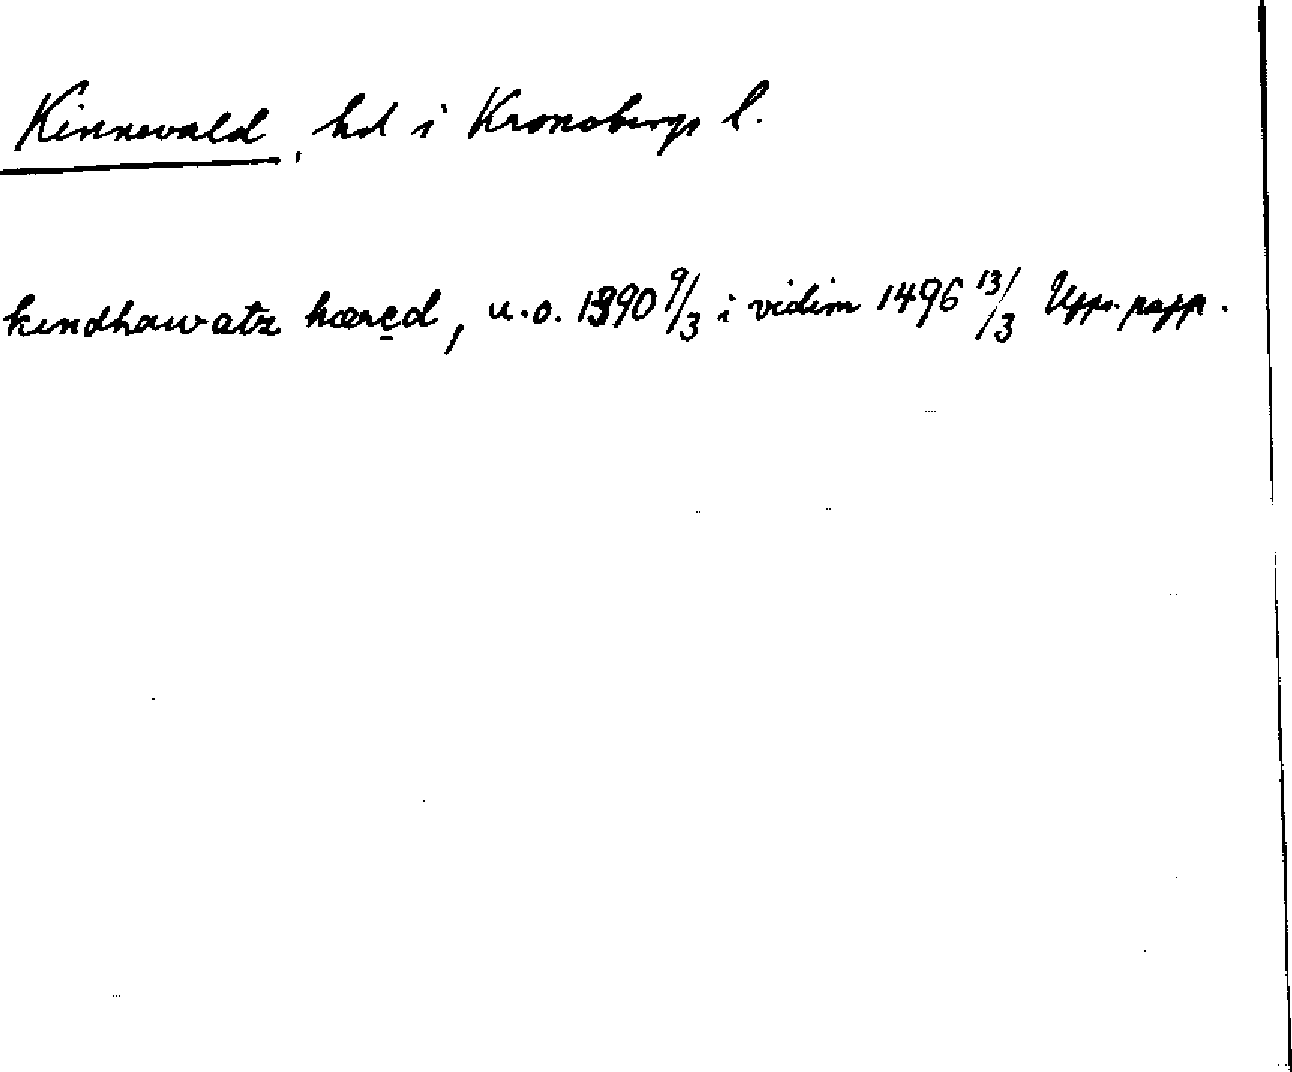 Kinnevald, hd i Kronobergs l.
kindhawatz hæred, u.o. 1390 9/3 i vidim 1496 13/3 Upps. papp.